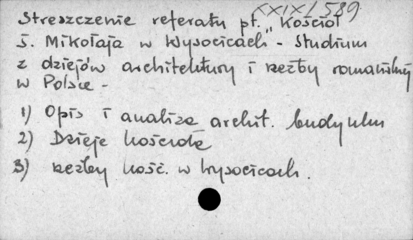 XXIX/589
Streszczenie referatu pt. "Kościół
ś. Mikołaja w Wysocicach - Studium
z dziejów architektury i rzeźby romańskiej
w Polsce -
1) Opis i analiza archit. budynku
2) Dzieje kościoła
3) rzeźby kość. w Wysocicach.